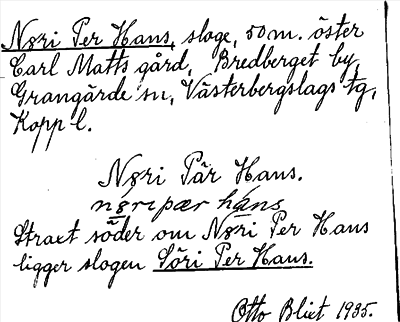 Nøri Per Hans, sloge, 50 m. öster
Carl Matts gård, Bredberget by,
Grangärde sn, Västerbergslags tg,
Kopp l.
Nøri Pär Hans.
nøripær hans
Straxt söder om Nøri Per Hans
ligger slogen Söri Per Hans.
Otto Blixt 1935.